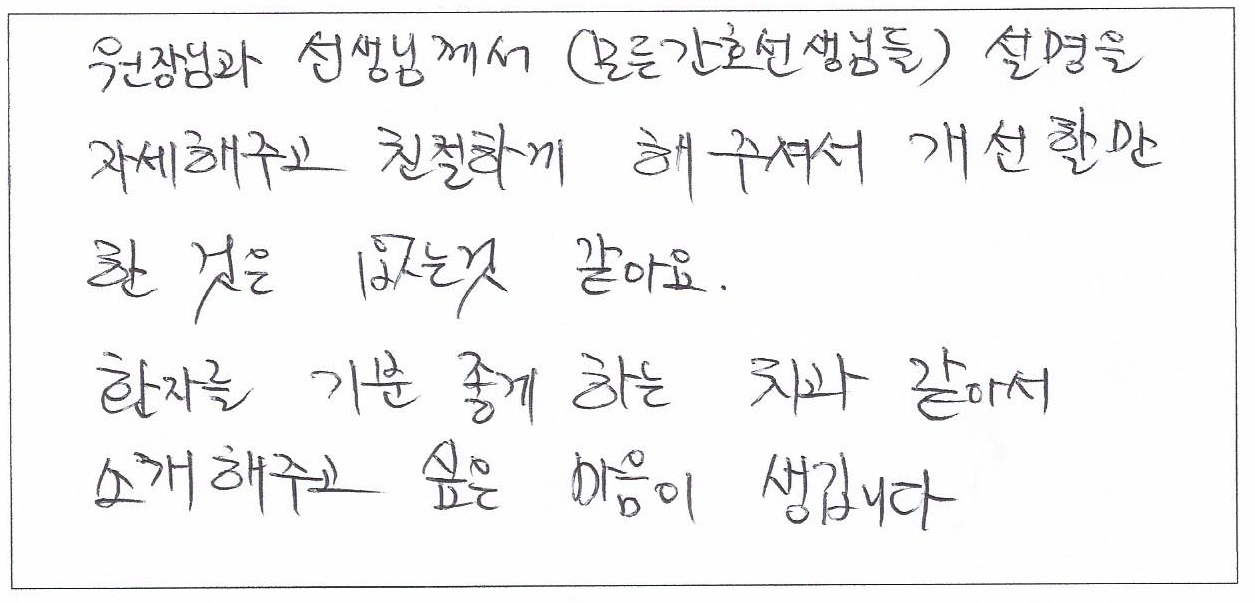 원장님과 선생님께서 (모든간호선생님들) 설명을
자세해주고 친절하게 해 주셔서 개선할만
한 것은 없는것 같아요.
환자를 기분 좋게 하는 치과 같아서
소개해주고 싶은 마음이 생깁니다